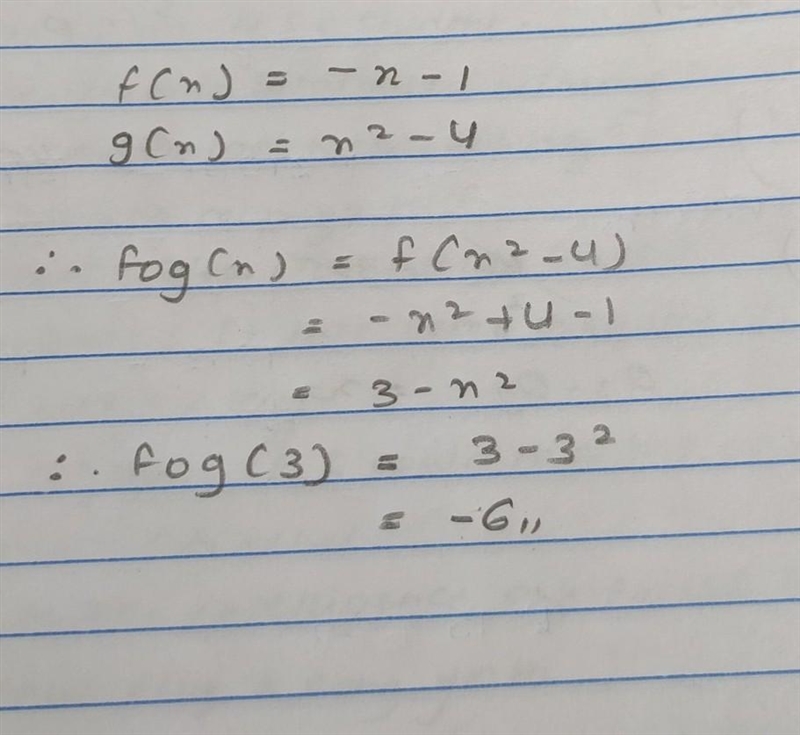 f(x) = -x - 1
g(x) = x² - 4
∴ fog(x) = f(x² - 4)
= -x² + 4 - 1
= 3 - x²
∴ fog(3) = 3 - 3²
= -6,,